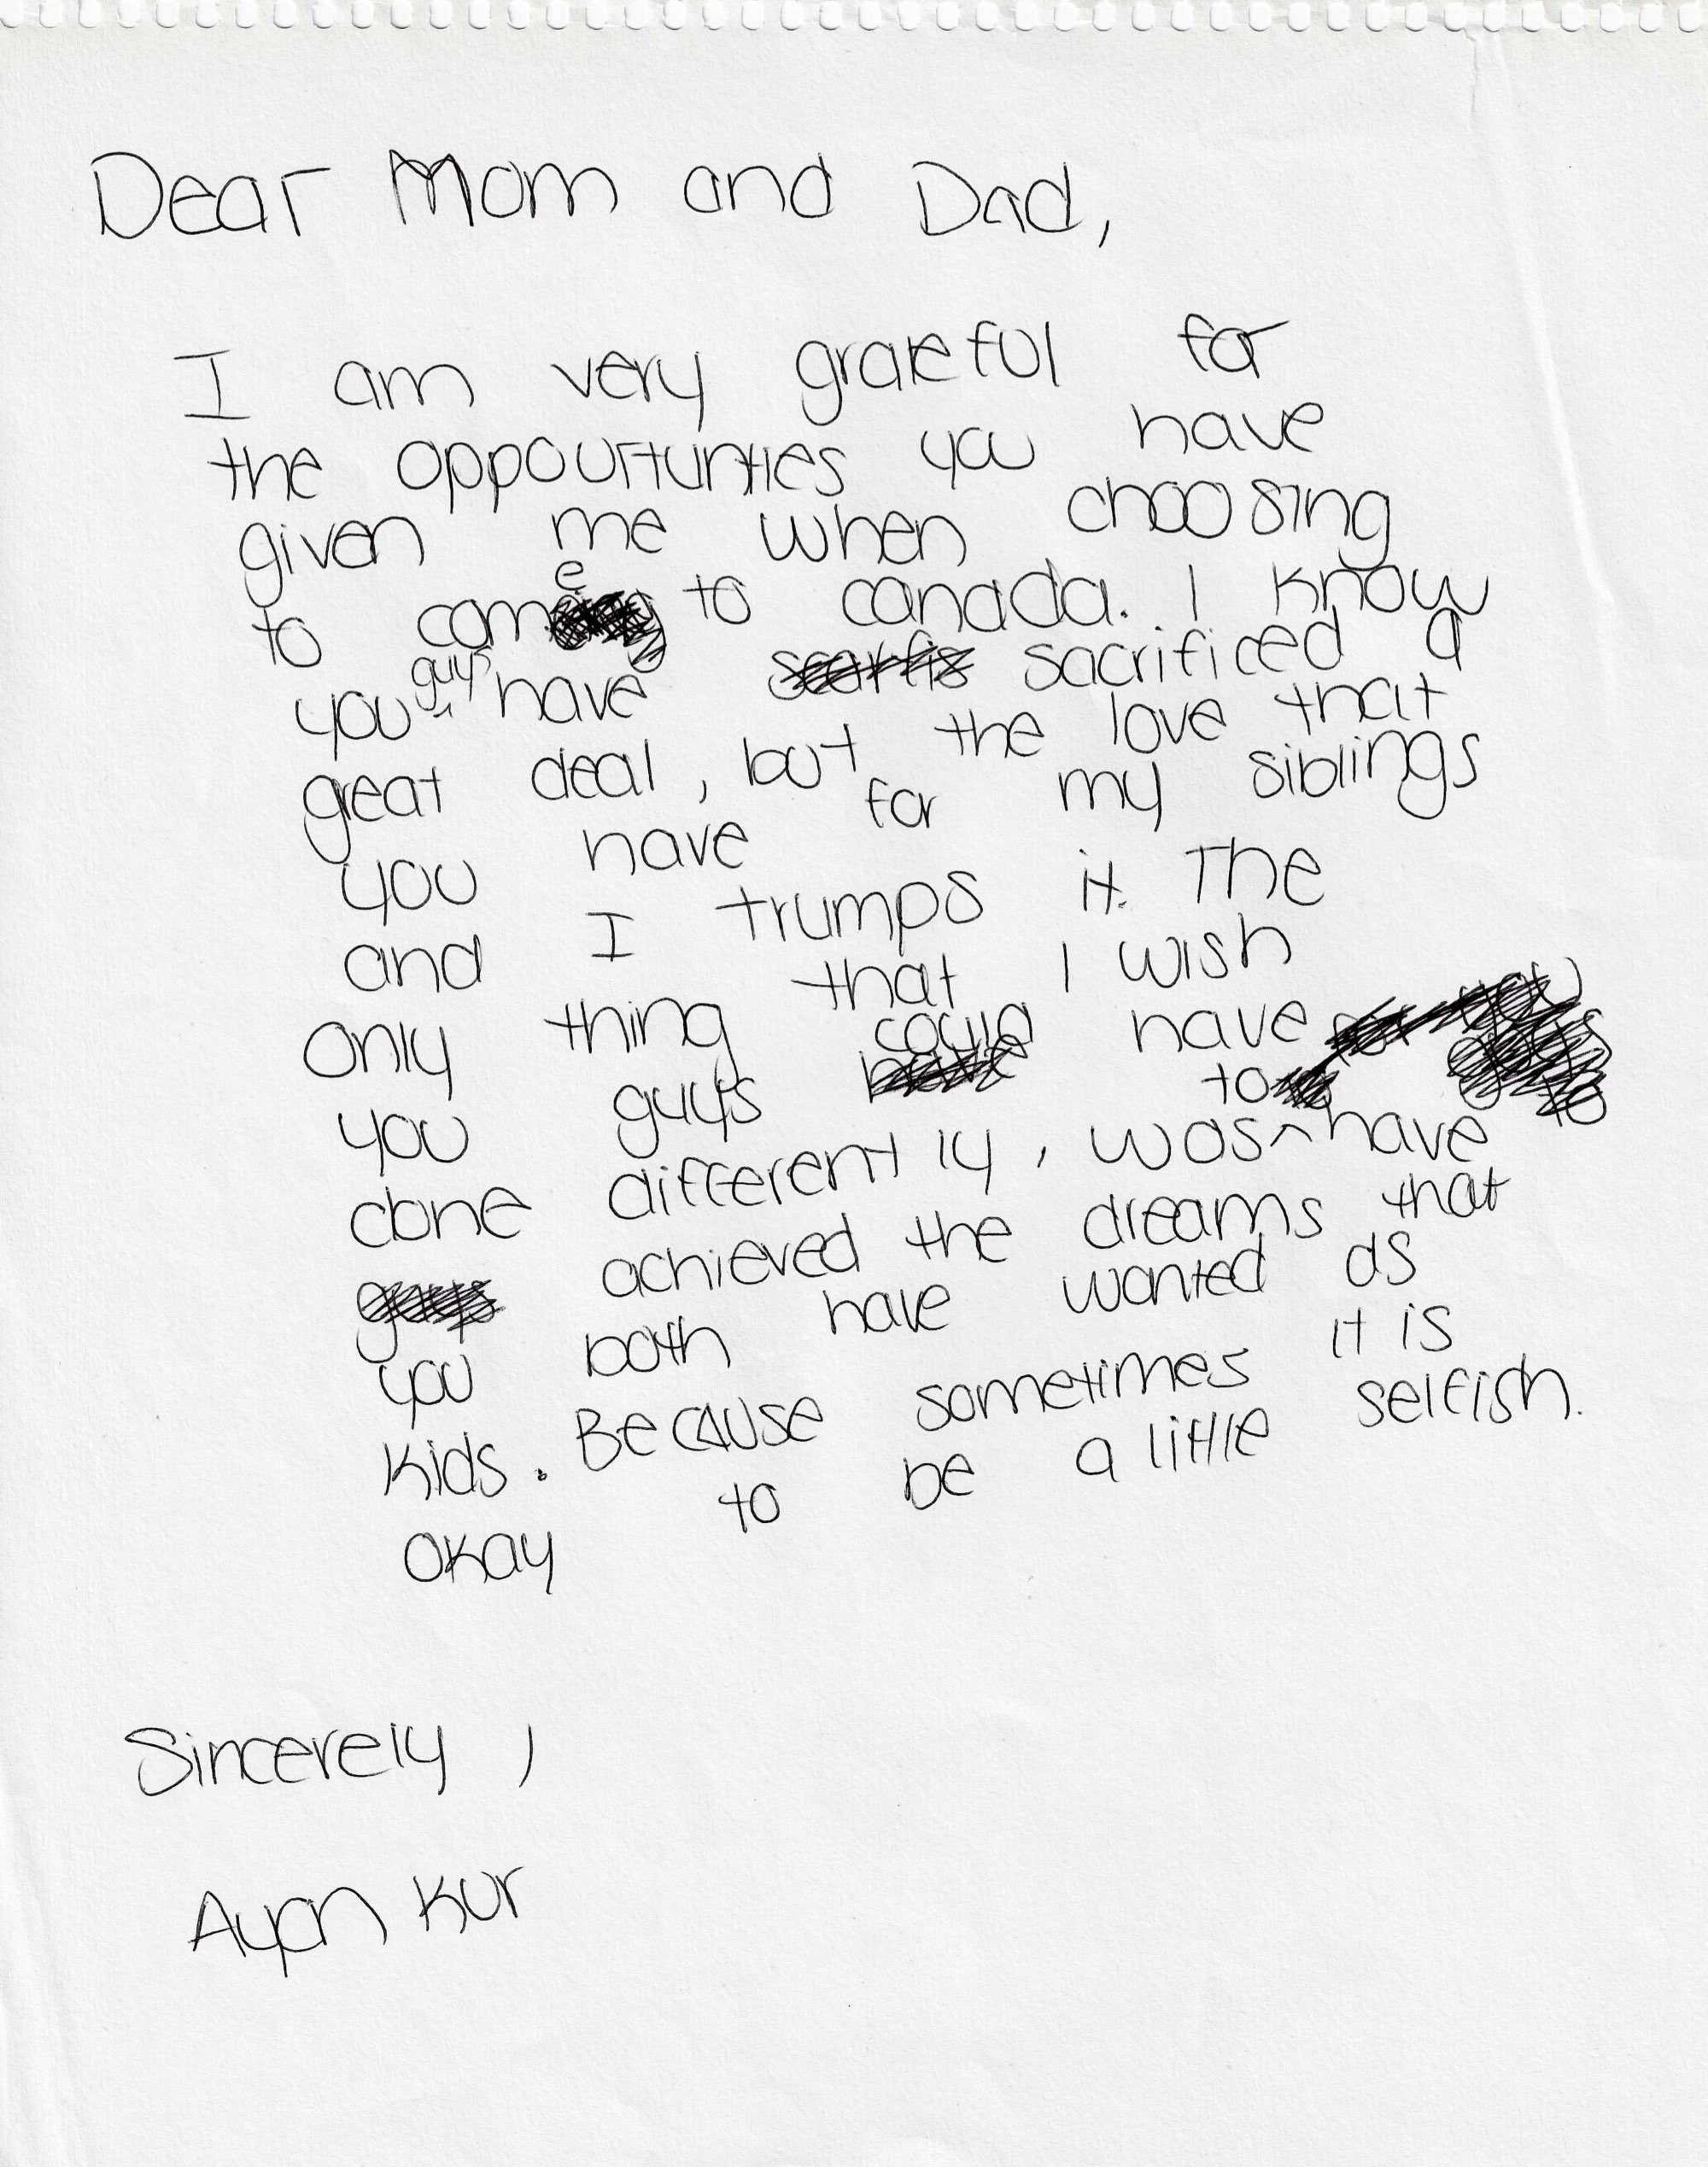 Dear Mom and Dad,
I am very grateful for
the oppourtunties you have
given me when choosing
to come to canada. I know
you guys have scarfis sacrificed a
great deal, but the love that
you have for my siblings
and I trumps it. The
only thing that I wish
you guys have could have
done differently, was to have
guys achieved the dreams that
you both have wanted as
kids. Because sometimes it is
okay to be a little selfish.
Sincerely,
Ayan Kur